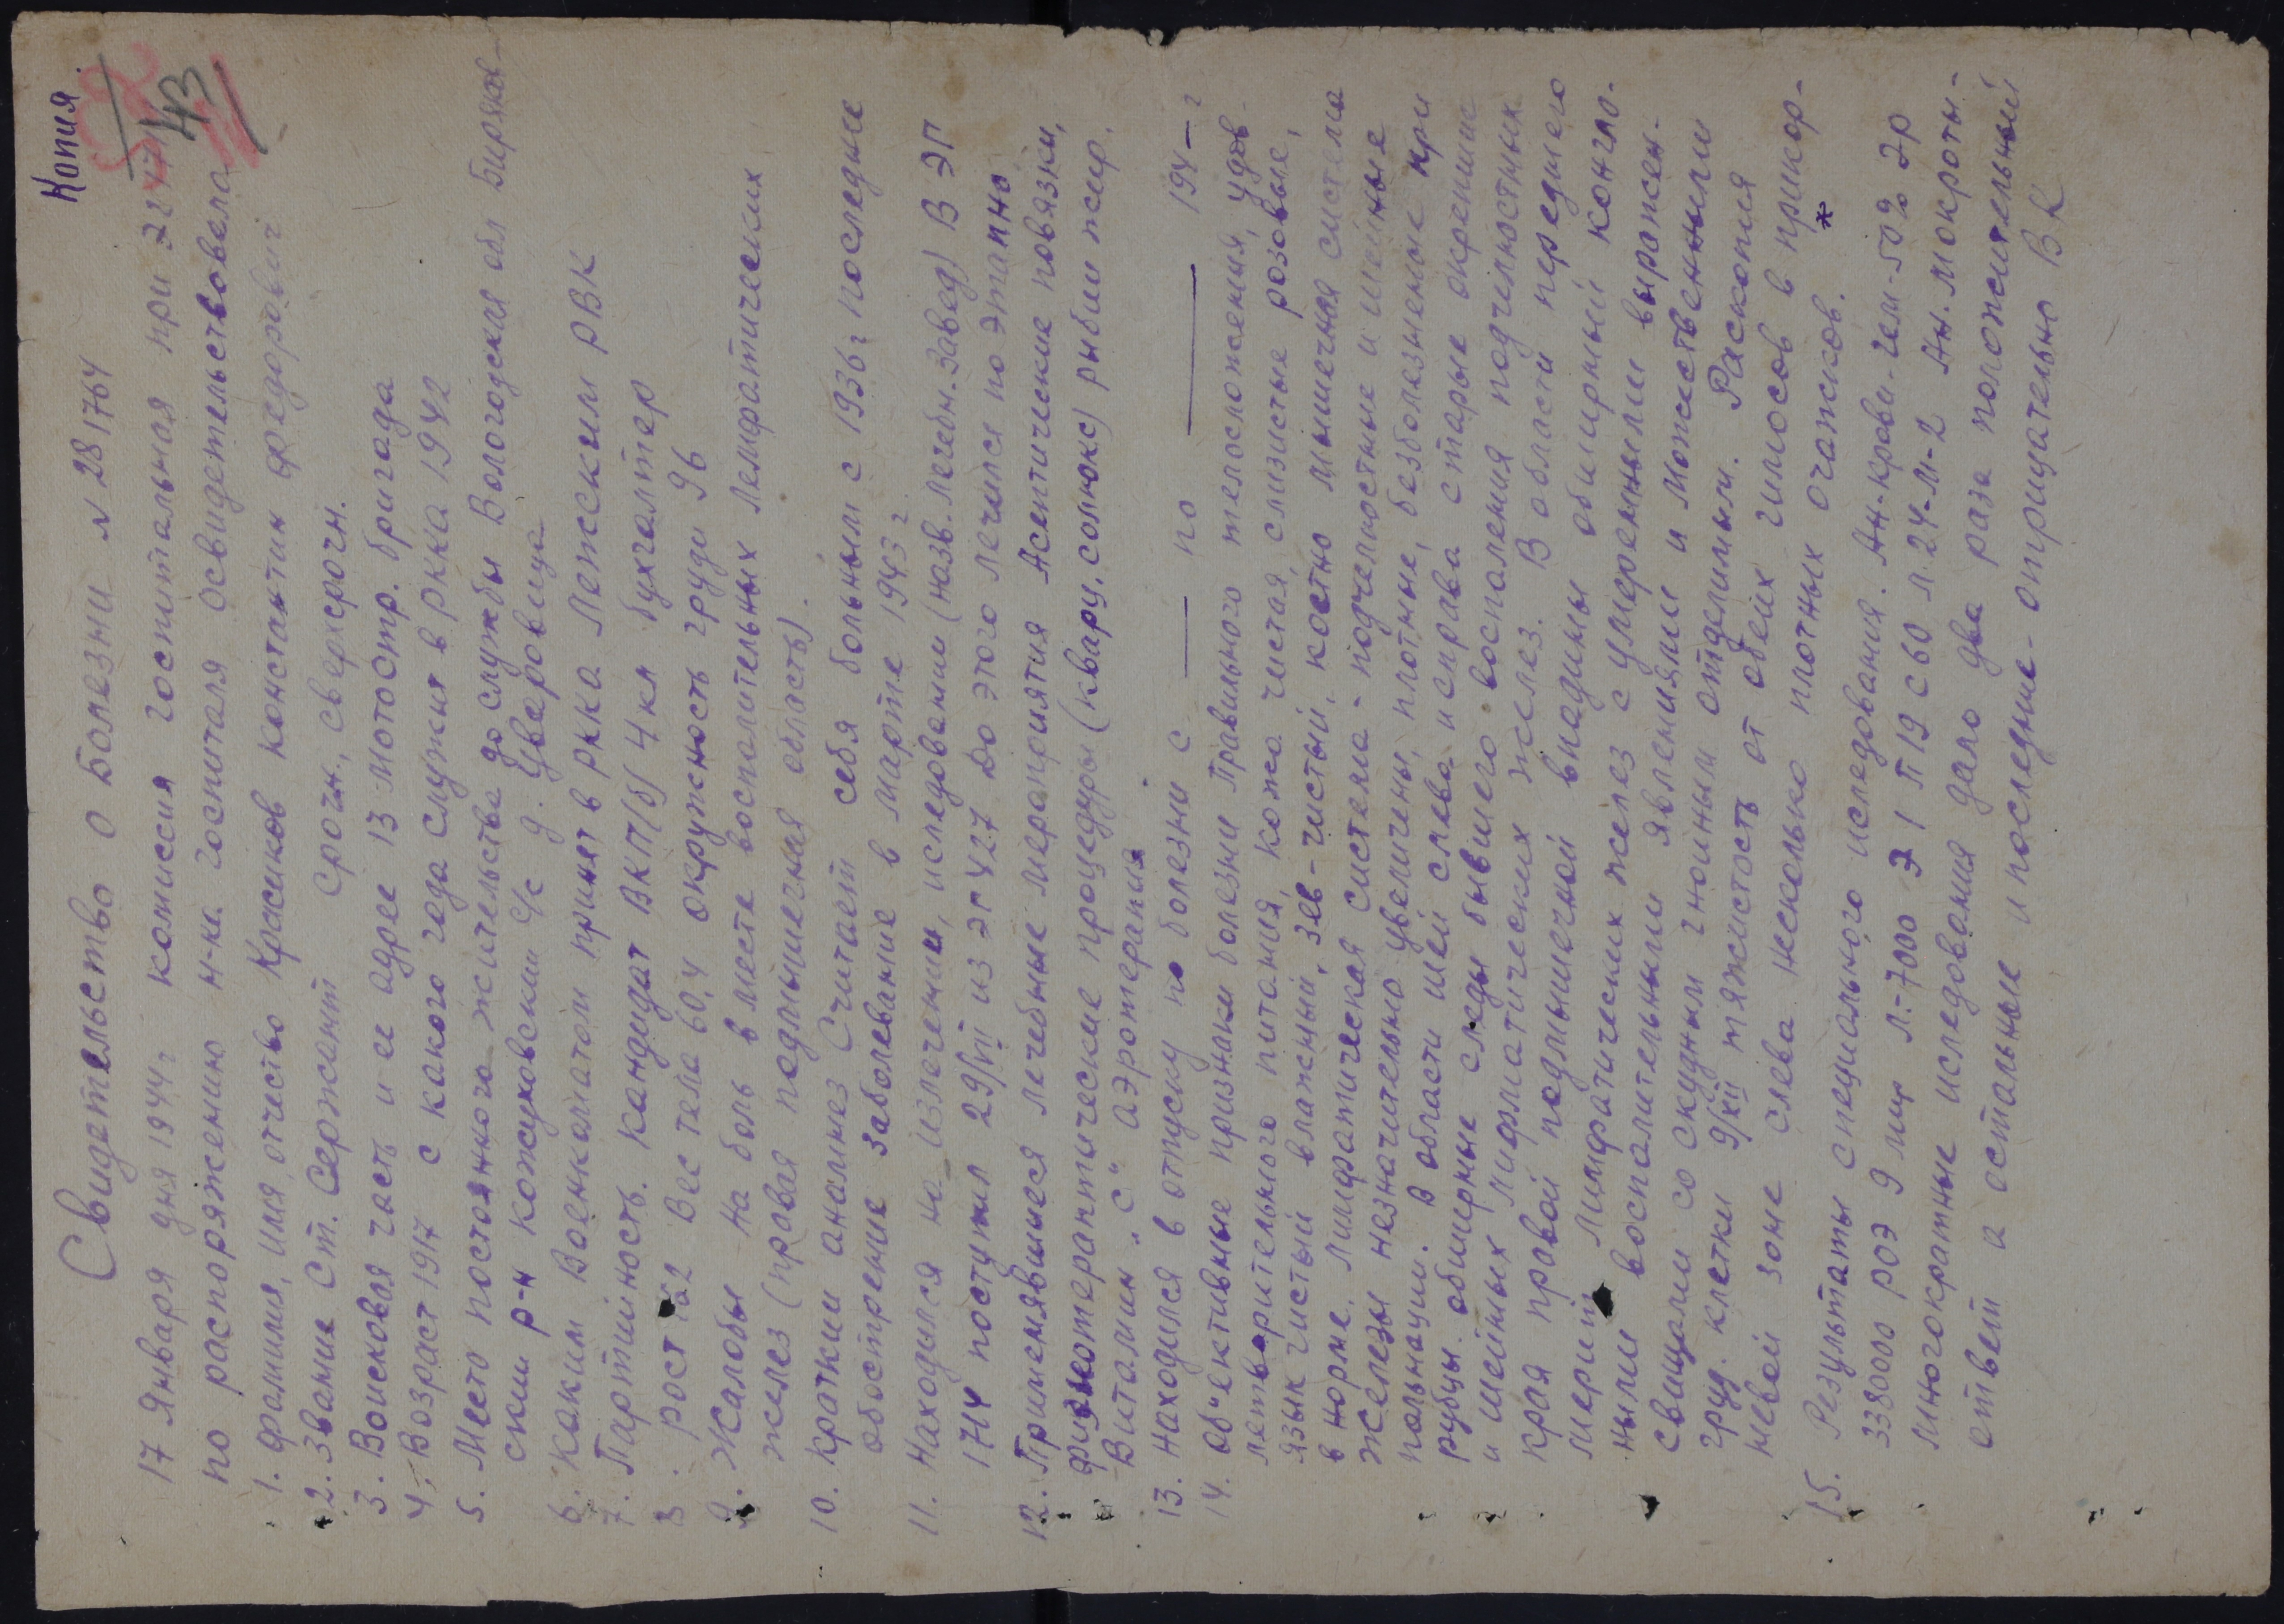 Копия
43
Свидетельство о болезни N 28/1764
17 января дня 1944 г комиссия госпитальная при ЭГ
по распоряжению н-ка госпиталя освидетельствовела
1. Фамилия, имя, отчество Красиков Константин Федорович
2. Звание Ст. Сержант Срочн., сверхсрочн.
3. Воисковая часть и ее адрес 13 мотостр. бригада
4. Возраст 1917 с какого года служит в РККА 1942
5. Место постоянного жительства до службы Вологодская обл Биряков-
ский р-н Кожуховский с/с д. Цваровица
6. Каким Военкоматом принят в РККА Лежским РВК
7. Партийность. Кандидат ВКП(б) 4 кл бухгалтер
8. рост Вес тела 60,4 окружность груди 96
9. Жалобы на боль в месте воспалительных лемфатических
желез (правая подмышечная область).
10. Краткий анамнез Считает себя больным с 1936 г последнее
обострение заболевание в марте 1943 г
11. Находился на излечении, иследовании (назв. лечебн. завед) В ЭГ
1714 поступил 29/VII из ЭГ 427 До этого лечился поэтапно
12. Применявшиеся лечебные мероприятия Асептические повязки,
физиотерапптические процедуры (кварц, солюкс) рыбий жир,
Витамин "С" аэротерапия.
13. Находился в отпуску по болезни с — по — 194— г
14. Об'ективные признаки болезни Правильного телосложения, удов-
летворительного питания, кожа чистая, слизистые розовые,
язык чистый влажный, зев-чистый, костно мышечная система
в норме. Лимфатическая система - подчелюстные и шейные
железы незначительно увеличены, плотные, безболезненные при
пальпации. В области шей слева и справа старые окрепшие
рубцы. обширные следы бывшего воспаления подчелюстных
и шейных лифматических желез. В области переднего
края правой подмышечной впадины обширный конгло-
мерий лимфатических желез с умеренными выражен-
ными воспалительными явлениями и множественными
свищами со скудным гноиным отделимым. Расскопия
груд. клетки 9/XII тяжистость от обеих гилюсов в прикор-
невой зоне слева несколько плотных очажков.
15. Результаты специального иследования. Ан-крови-гем-50% Эр
3380000 РОЭ 9 мм Л-7000 Э 1 П 19 С 60 Л. 24-М-2 Ан. мокроты-
многократные иследования дало два раза положительный
ответ а остальные и последние-отрицательно ВК